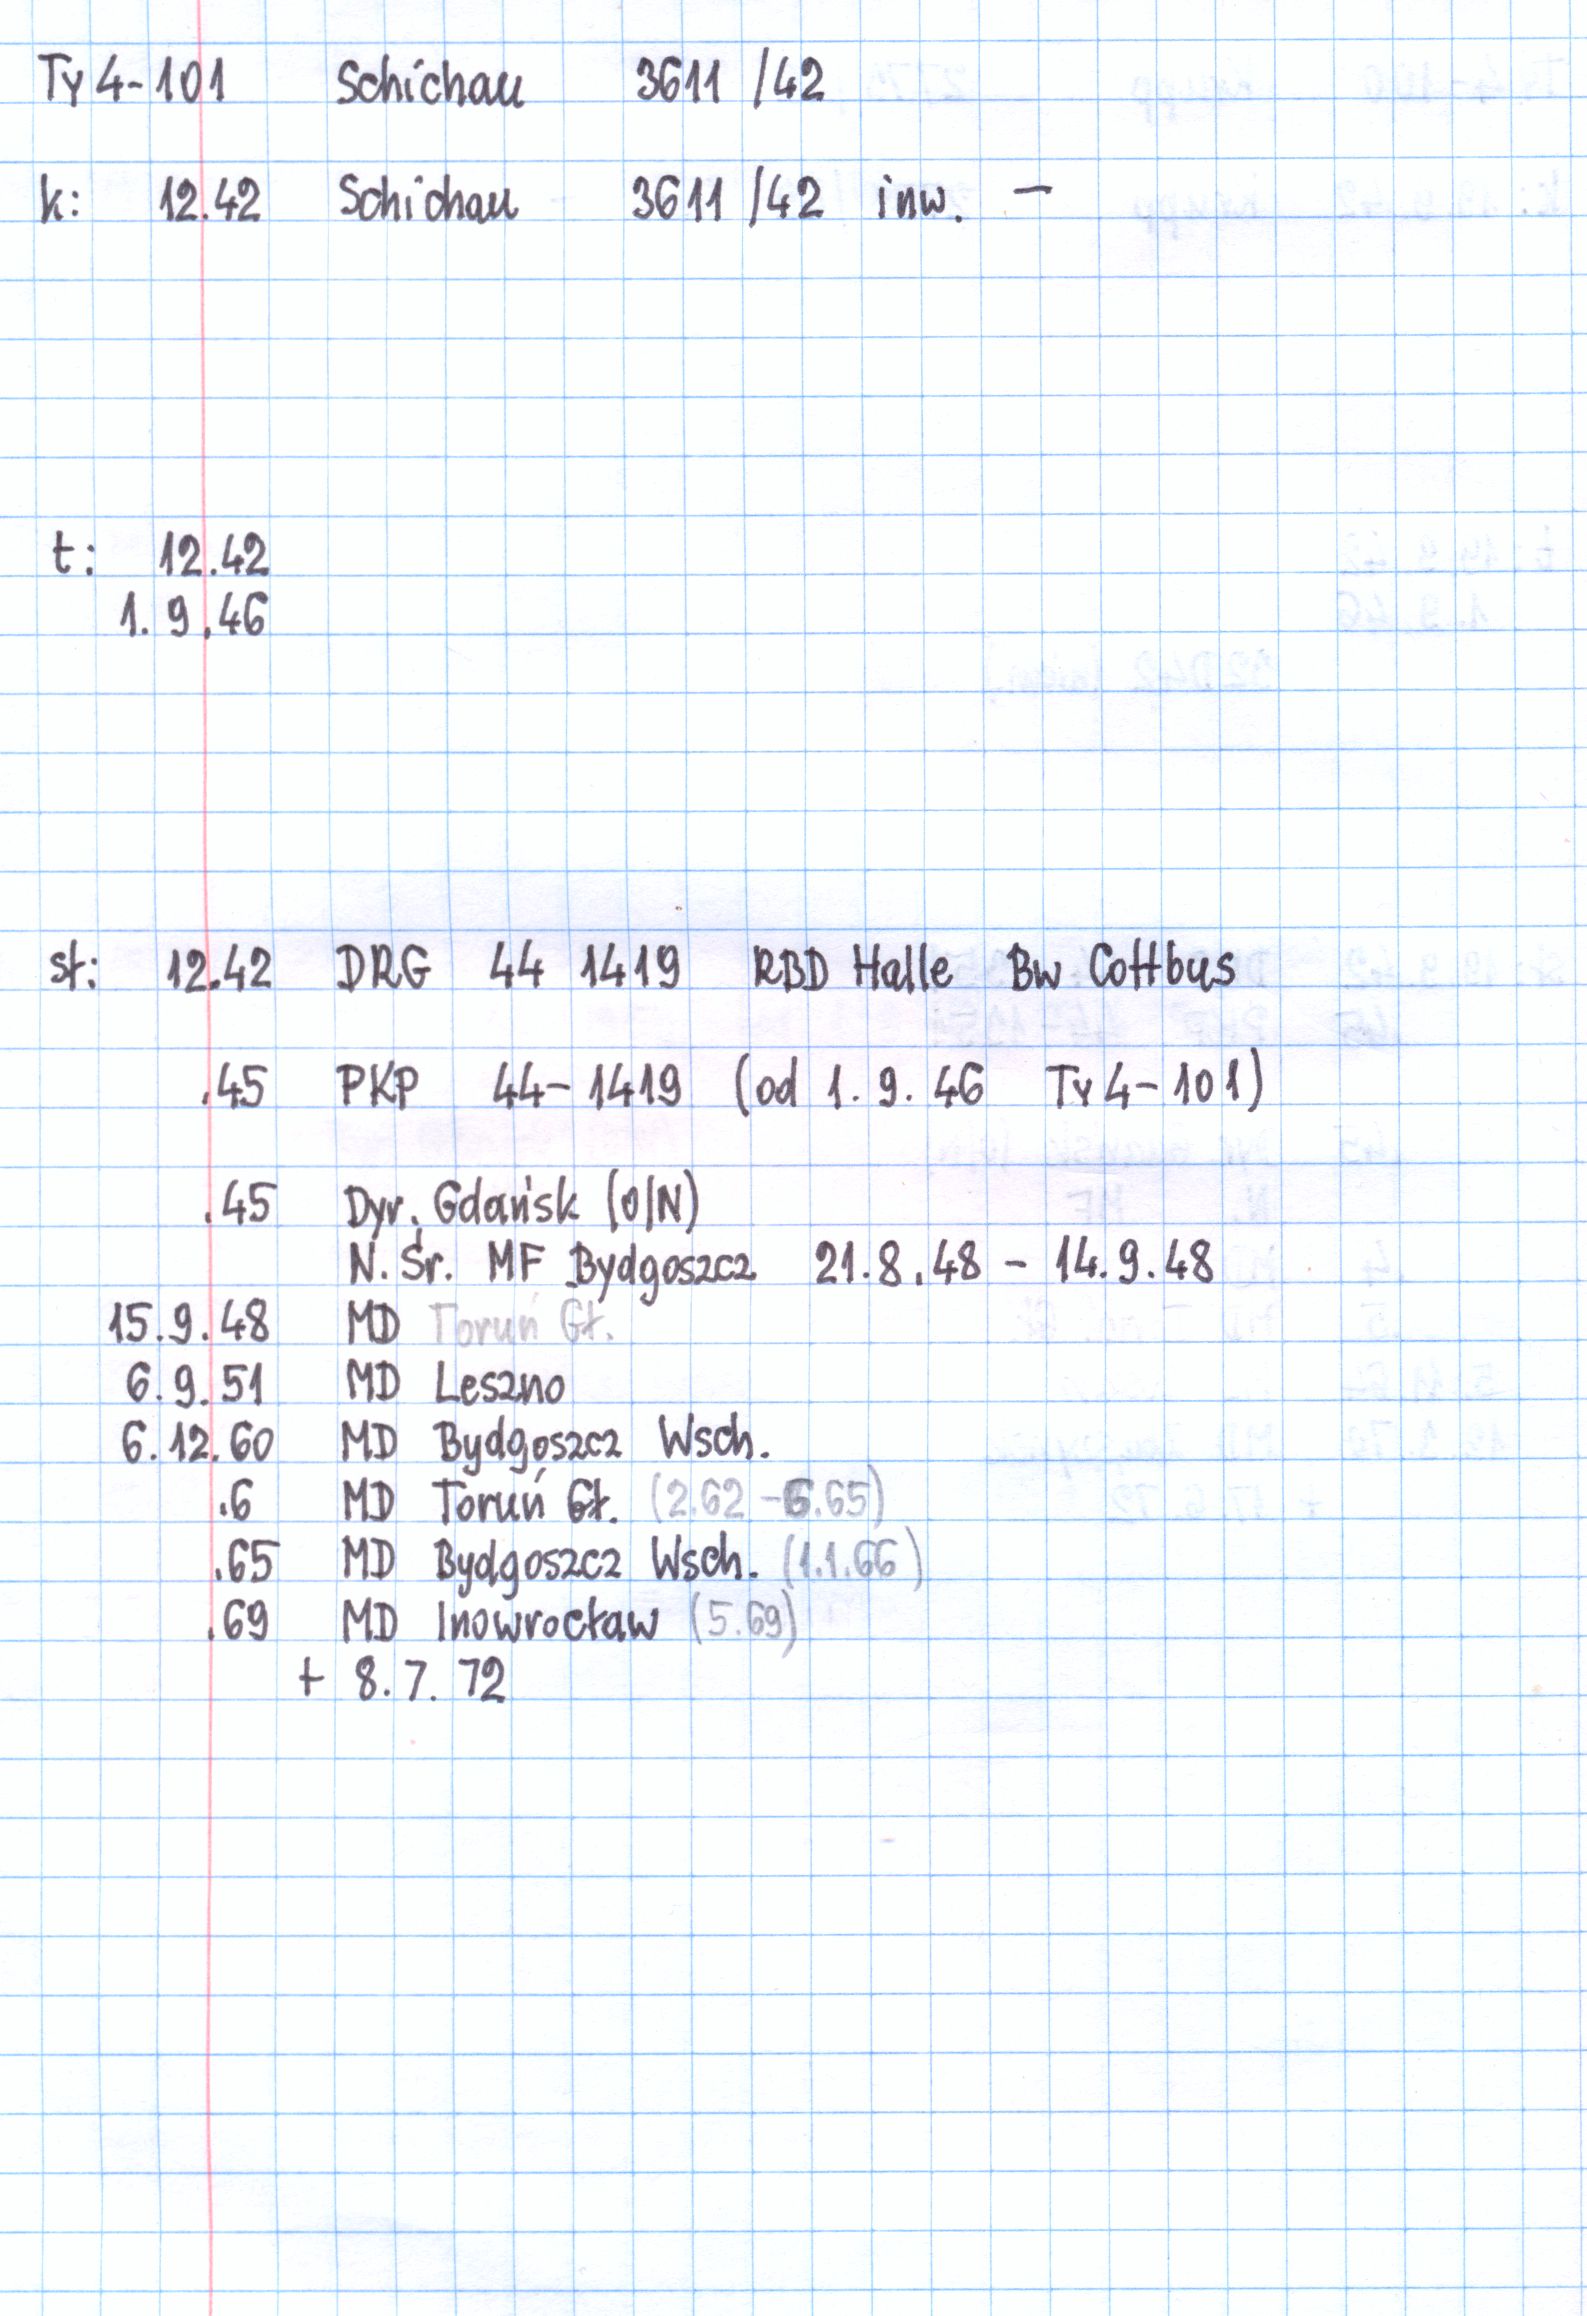 Ty4-101 Schichau 3611/42
k: 12.42 Schichau 3611/42 inw. —
t: 12.42
1.9.46
st: 12.42 DRG 44 1419 RBD Halle Bw Cottbus
.45 PKP 44-1419 (od 1.9.46 Ty4-101)
.45 Dyr. Gdańsk (O/N)
N.Śr. MF Bydgoszcz 21.8.48 - 14.9.48
15.9.48 MD Toruń Gł.
6.9.51 MD Leszno
6.12.60 MD Bydgoszcz Wsch.
.6 MD Toruń Gł. (2.62 - 6.65)
.65 MD Bydgoszcz Wsch. (1.1.66)
.69 MD Inowrocław (5.69)
+ 8.7.72